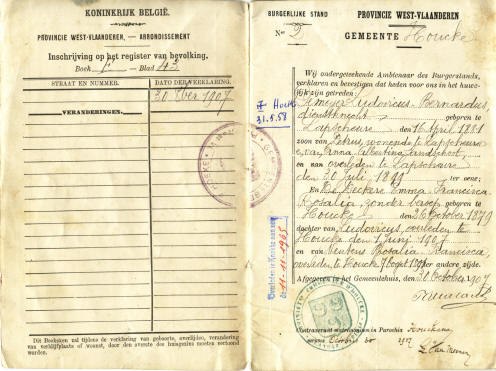 KONINKRIJK BELGIË.
PROVINCIE WEST-VLAANDEREN, — ARRONDISSEMENT
Inschrijving op het register van bevolking.
Boek F — Blad 43
STRAAT EN NUMMER.
DATO DER VERKLARING.
30 8ber 1907
VERANDERINGEN.
Dit Boeksken zal tijdens de verklaring van geboorte, overlijden, verandering
van verblijfplaats of woonst, door den overste des huisgezins moeten vertoond
worden.
BURGERLIJKE STAND
PROVINCIE WEST-VLAANDEREN
Nr 2
GEMEENTE Houcke
Wij ondergeteekende Ambtenaar des Burgerstands,
verklaren en bevestigen dat heden voor ons in het huwe-
lijk zijn getreden:
Ludovicus Bernardus,
dienstknecht geboren te
Lapscheure den 16 April 1881
zoon van Petrus, wonende te Lapscheure
en van Anna
en van overleden te Lapscheure
den 30 Juli 1899 ter eene;
En De Beckere Emma Francisca
Rosalia, zonder beroep geboren te
Houcke den 26 October 1879
dochter van Ludovicus, overleden te
Houcke den 1 Juni 1907
en Rosalia Francisca,
overleden te Houcke ter andere zijde.
Afgegeven in het Gemeentehuis, den 30 October 1907
31.5.58
11-11-1965
Contraxerunt matrimonium in Parochia Houckena
mensis Octobris 30 1907